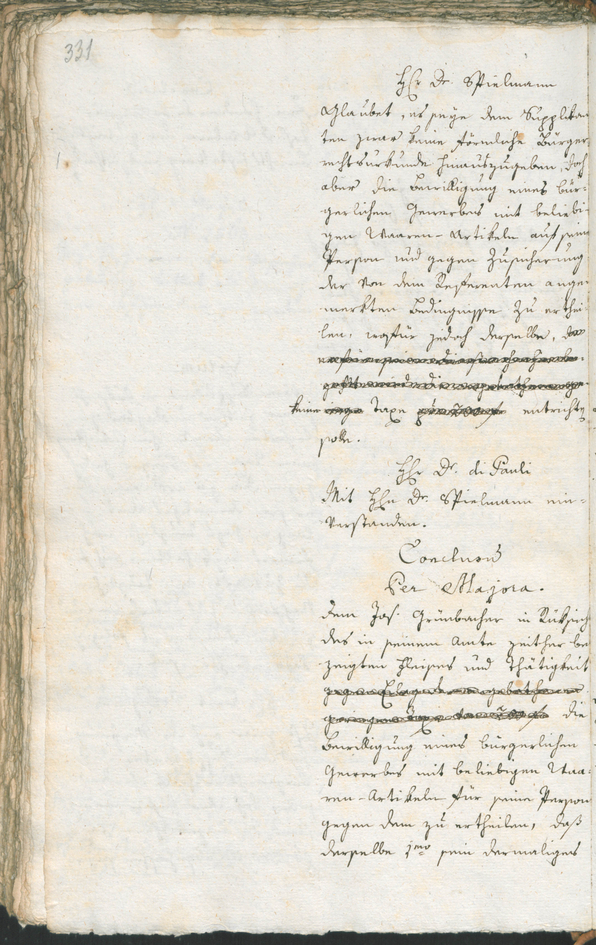 331
H[err] Dr Spielmann
Glaubet, es seye dem Supplikan
ten zwar keine förmliche Bürger
rechtsurkunde hinauszugeben, doch
aber die Bewilligung eines bür=
gerlichen Gewerbes mit beliebi=
gen Waaren-Artikeln auf seine
Person und gegen Zusicherung
der von dem Referenten ange
merkten Bedingnisse zu erthei
len, wofür jedoch derselbe,
keine Taxe entrichten
solle.
Hr Dr. di Pauli
Mit Hrn Dr. Spielmann ein=
verstanden.
Conclusum
Per Majora.
Dem Jos. Grünbacher in Rüksicht
des in seinem Amte zeither be
zeigten Fleißes und Thätigkeit
die
Bewilligung eines bürgerlichen
Gewerbes mit beliebigen Waa=
ren-Artikeln für seine Person
gegen dem zu ertheilen, daß
derselbe 1mo sein dermaliges